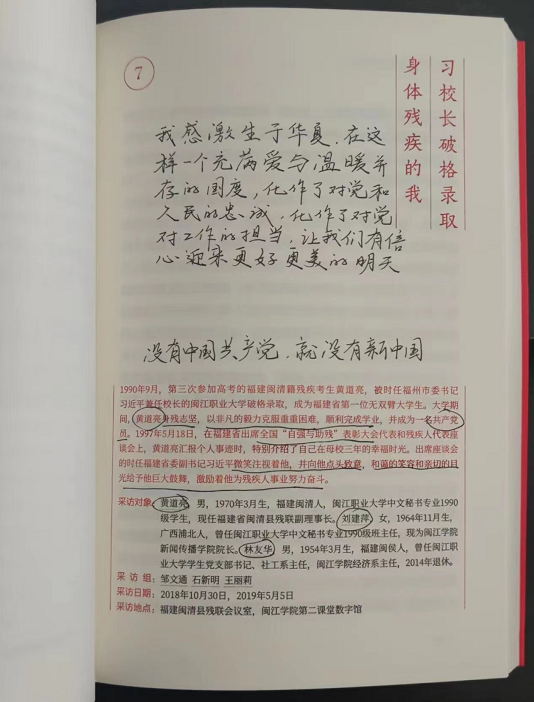 7
习校长破格录取
身体残疾的我
我感激生于华夏，在这
样一个充满爱与温暖并
存的国度，化作了对党和
人民的忠诚，化作了对党
对工作的担当，让我们有信
心迎来更好更美的明天
没有中国共产党，就没有新中国
1990年9月，第三次参加高考的福建闽清籍残疾考生黄道亮，被时任福州市委书记
习近平兼任校长的闽江职业大学破格录取，成为福建省第一位无双臂大学生。大学期
间，黄道亮身残志坚，以非凡的毅力克服重重困难，顺利完成学业，并成为一名共产党
员。1997年5月18日，在福建省出席全国“自强与助残”表彰大会代表和残疾人代表座
谈会上，黄道亮汇报个人事迹时，特别介绍了自己在母校三年的幸福时光。出席座谈会
的时任福建省委副书记习近平微笑注视着他，并向他点头致意，和蔼的笑容和亲切的目
光给予他巨大鼓舞，激励着他为残疾人事业努力奋斗。
采访对象：黄道亮，男，1970年3月生，福建闽清人，闽江职业大学中文秘书专业1990
级学生，现任福建省闽清县残联副理事长。刘建萍，女，1964年11月生，
广西浦北人，曾任闽江职业大学中文秘书专业1990级班主任，现为闽江学院
新闻传播学院院长。林友华，男，1954年3月生，福建闽侯人，曾任闽江职
业大学学生党支部书记、社工系主任，闽江学院经济系主任，2014年退休。
采 访 组：邹文通 石新明 王丽莉
采访日期：2018年10月30日，2019年5月5日
采访地点：福建闽清县残联会议室，闽江学院第二课堂数字馆